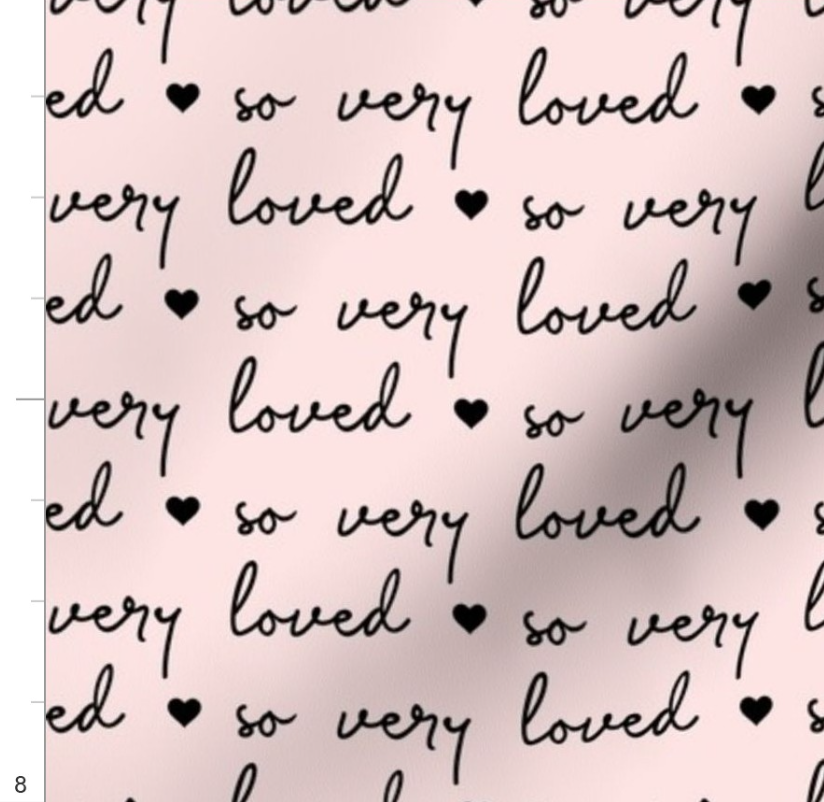 very loved ♥ so very
ed ♥ so very loved ♥ s
very loved ♥ so very l
ed ♥ so very loved ♥ s
very loved ♥ so very l
ed ♥ so very loved ♥ s
very loved ♥ so very l
ed ♥ so very loved ♥ s
8